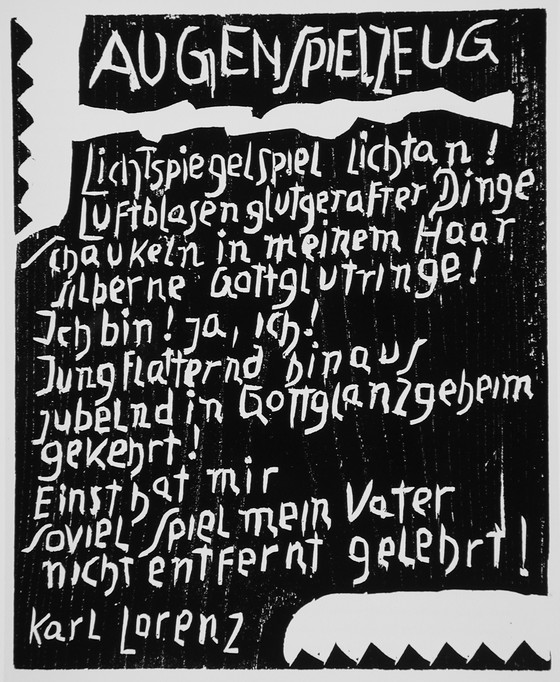 AUGENSPIELZEUG
Lichtspiegelspiel lichtan!
Luftblasen glutgeraffter Dinge
schaukeln in meinem Haar
silberne Gottglutringe!
Ich bin! ja, ich!
Jungflatternd hinaus
jubelnd in Gottglanzgeheim
gekehrt!
Einst hat mir
soviel Spiel mein Vater
nicht entfernt gelehrt!
Karl Lorenz